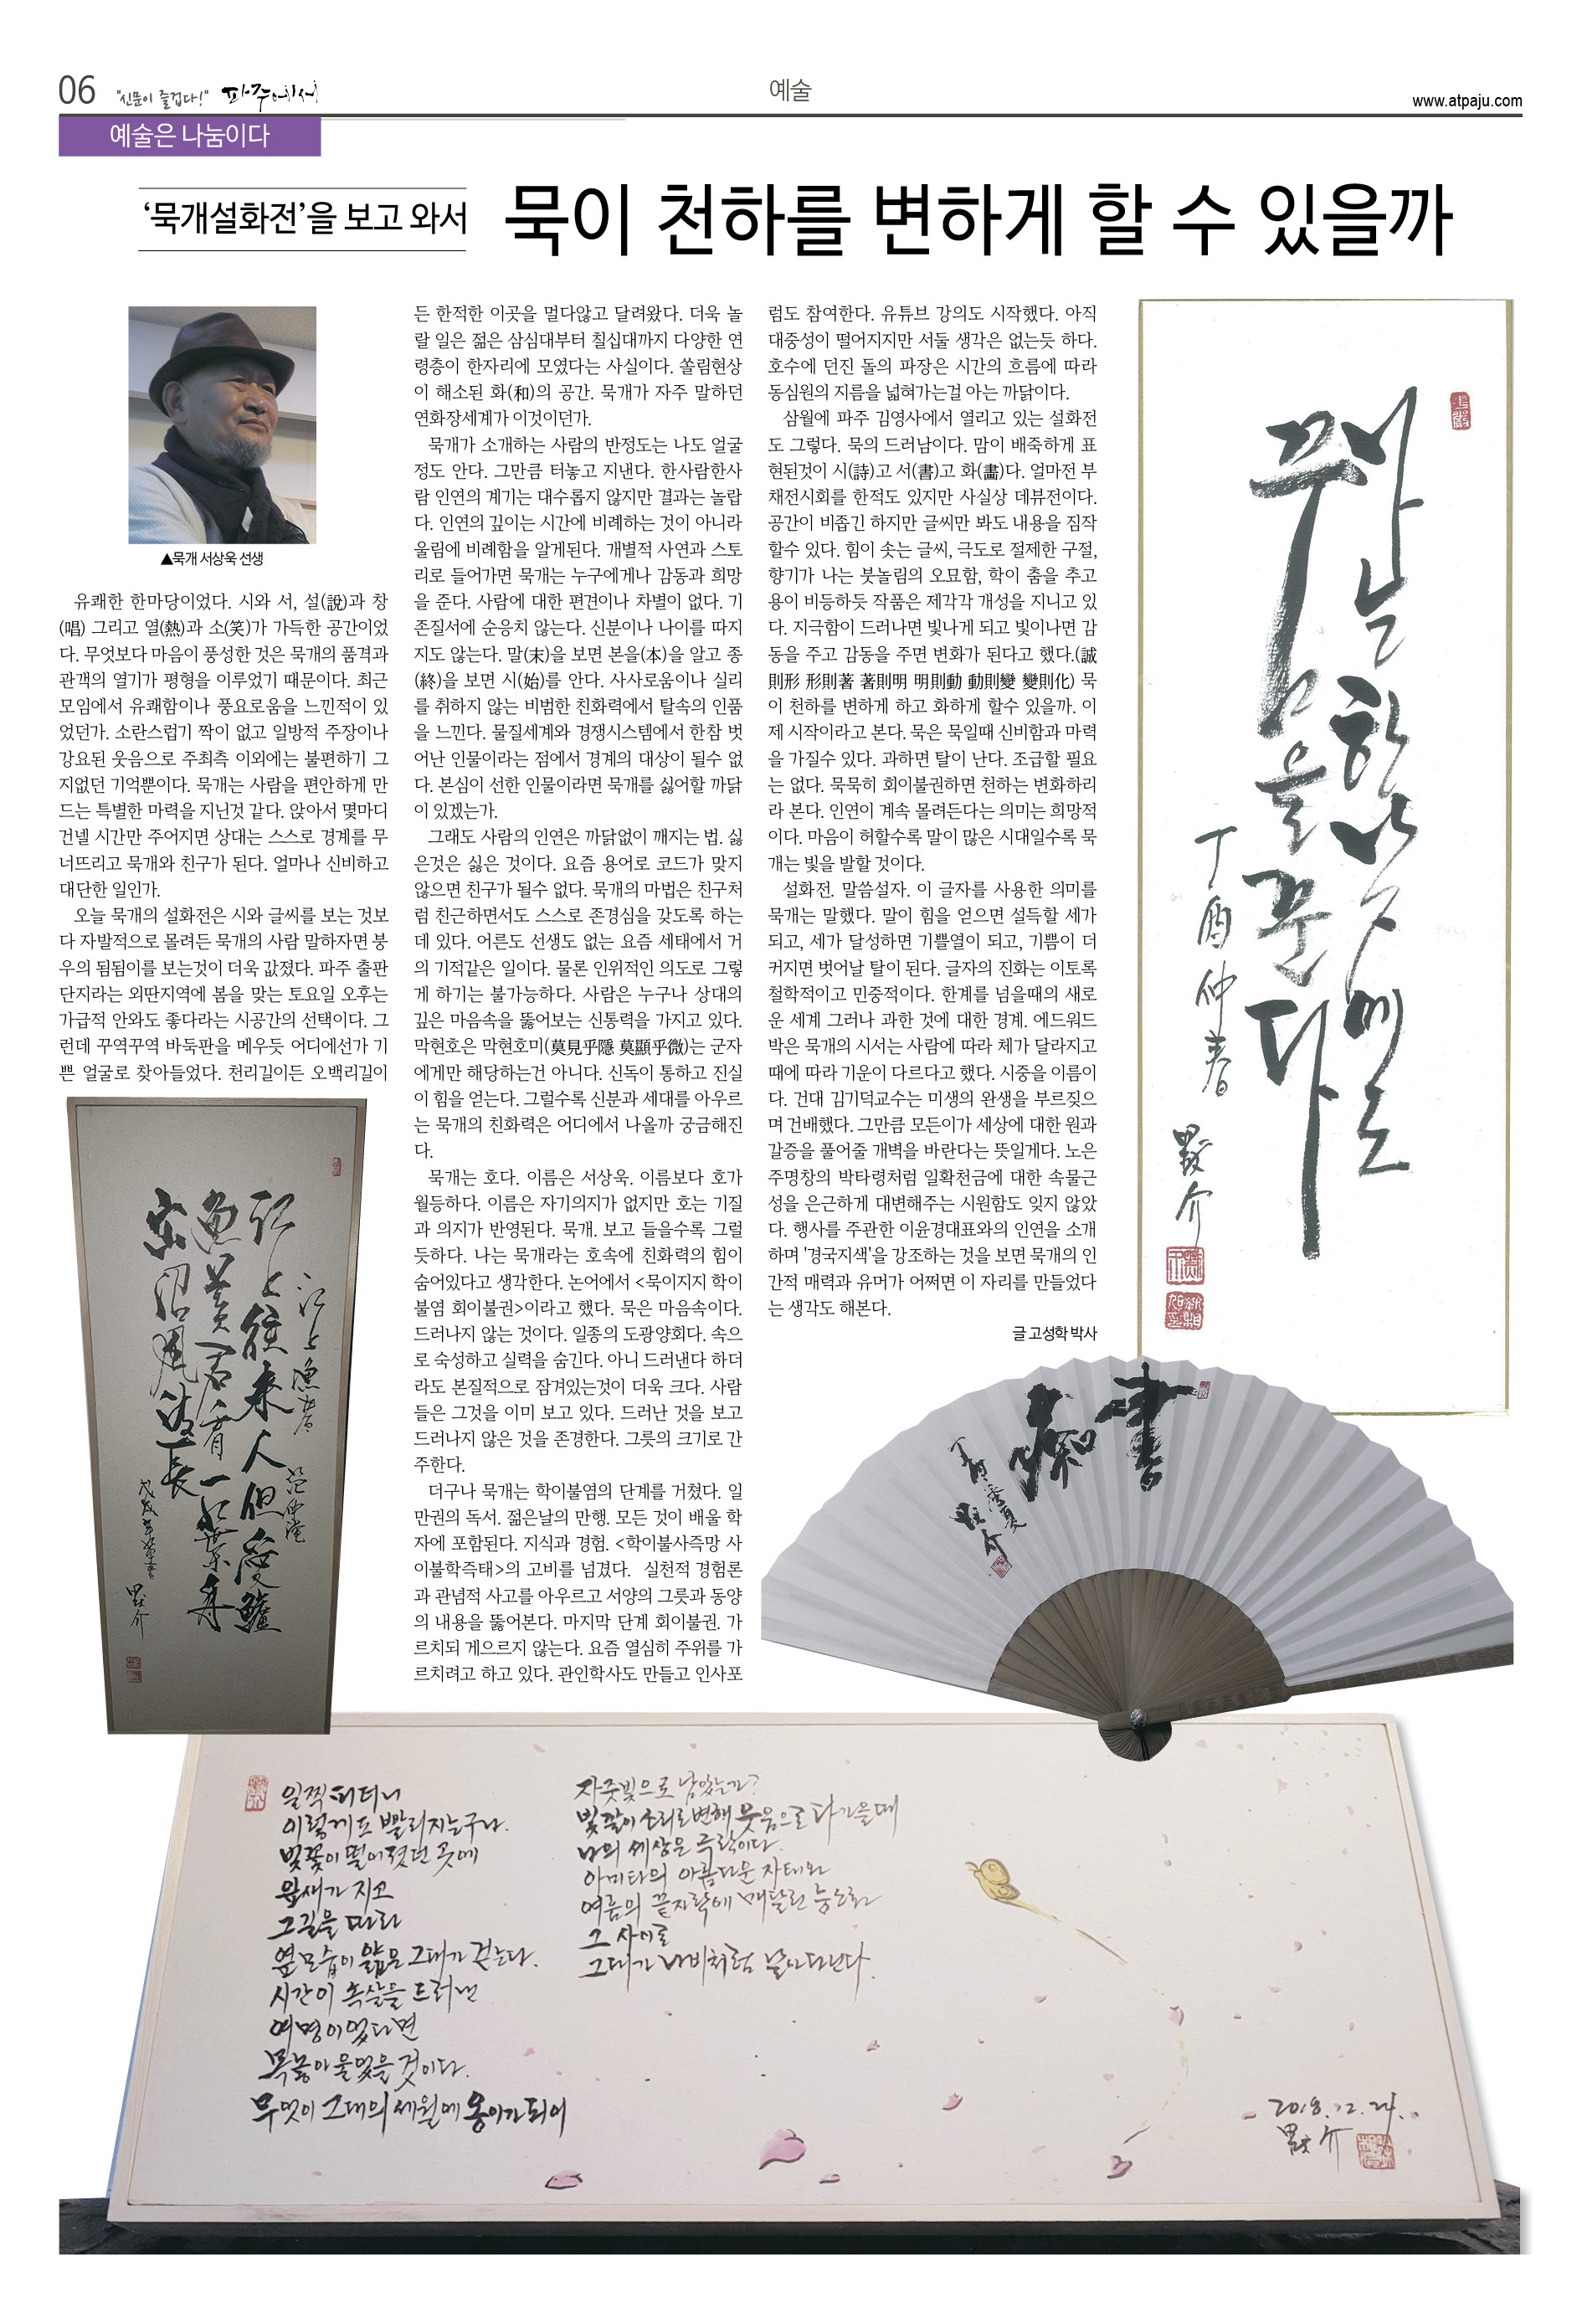 06
"신문이 즐겁다!" 파주에서
예술
www.atpaju.com
예술은 나눔이다
‘묵개설화전’을 보고 와서
묵이 천하를 변하게 할 수 있을까
▲묵개 서상욱 선생
유쾌한 한마당이었다. 시와 서, 설(說)과 창
(唱) 그리고 열(熱)과 소(笑)가 가득한 공간이었
다. 무엇보다 마음이 풍성한 것은 묵개의 품격과
관객의 열기가 평형을 이루었기 때문이다. 최근
모임에서 유쾌함이나 풍요로움을 느낀적이 있
었던가. 소란스럽기 짝이 없고 일방적 주장이나
강요된 웃음으로 주최측 이외에는 불편하기 그
지없던 기억뿐이다. 묵개는 사람을 편안하게 만
드는 특별한 마력을 지닌것 같다. 앉아서 몇마디
건넬 시간만 주어지면 상대는 스스로 경계를 무
너뜨리고 묵개와 친구가 된다. 얼마나 신비하고
대단한 일인가.
오늘 묵개의 설화전은 시와 글씨를 보는 것보
다 자발적으로 몰려든 묵개의 사람 말하자면 붕
우의 됨됨이를 보는것이 더욱 값졌다. 파주 출판
단지라는 외딴지역에 봄을 맞는 토요일 오후는
가급적 안와도 좋다라는 시공간의 선택이다. 그
런데 꾸역꾸역 바둑판을 메우듯 어디에선가 기
쁜 얼굴로 찾아들었다. 천리길이든 오백리길이
든 한적한 이곳을 멀다않고 달려왔다. 더욱 놀
랄 일은 젊은 삼심대부터 칠십대까지 다양한 연
령층이 한자리에 모였다는 사실이다. 쏠림현상
이 해소된 화(和)의 공간. 묵개가 자주 말하던
연화장세계가 이것이던가.
묵개가 소개하는 사람의 반정도는 나도 얼굴
정도 안다. 그만큼 터놓고 지낸다. 한사람한사
람 인연의 계기는 대수롭지 않지만 결과는 놀랍
다. 인연의 깊이는 시간에 비례하는 것이 아니라
울림에 비례함을 알게된다. 개별적 사연과 스토
리로 들어가면 묵개는 누구에게나 감동과 희망
을 준다. 사람에 대한 편견이나 차별이 없다. 기
존질서에 순응치 않는다. 신분이나 나이를 따지
지도 않는다. 말(末)을 보면 본을(本)을 알고 종
(終)을 보면 시(始)를 안다. 사사로움이나 실리
를 취하지 않는 비범한 친화력에서 탈속의 인품
을 느낀다. 물질세계와 경쟁시스템에서 한참 벗
어난 인물이라는 점에서 경계의 대상이 될수 없
다. 본심이 선한 인물이라면 묵개를 싫어할 까닭
이 있겠는가.
그래도 사람의 인연은 까닭없이 깨지는 법. 싫
은것은 싫은 것이다. 요즘 용어로 코드가 맞지
않으면 친구가 될수 없다. 묵개의 마법은 친구처
럼 친근하면서도 스스로 존경심을 갖도록 하는
데 있다. 어른도 선생도 없는 요즘 세태에서 거
의 기적같은 일이다. 물론 인위적인 의도로 그렇
게 하기는 불가능하다. 사람은 누구나 상대의
깊은 마음속을 뚫어보는 신통력을 가지고 있다.
막현호은 막현호미(莫見乎隱 莫顯乎微)는 군자
에게만 해당하는건 아니다. 신독이 통하고 진실
이 힘을 얻는다. 그럴수록 신분과 세대를 아우르
는 묵개의 친화력은 어디에서 나올까 궁금해진
다.
묵개는 호다. 이름은 서상욱. 이름보다 호가
월등하다. 이름은 자기의지가 없지만 호는 기질
과 의지가 반영된다. 묵개. 보고 들을수록 그럴
듯하다. 나는 묵개라는 호속에 친화력의 힘이
숨어있다고 생각한다. 논어에서 <묵이지지 학이
불염 회이불권>이라고 했다. 묵은 마음속이다.
드러나지 않는 것이다. 일종의 도광양회다. 속으
로 숙성하고 실력을 숨긴다. 아니 드러낸다 하더
라도 본질적으로 잠겨있는것이 더욱 크다. 사람
들은 그것을 이미 보고 있다. 드러난 것을 보고
드러나지 않은 것을 존경한다. 그릇의 크기로 간
주한다.
더구나 묵개는 학이불염의 단계를 거쳤다. 일
만권의 독서. 젊은날의 만행. 모든 것이 배울 학
자에 포함된다. 지식과 경험. <학이불사즉망 사
이불학즉태>의 고비를 넘겼다. 실천적 경험론
과 관념적 사고를 아우르고 서양의 그릇과 동양
의 내용을 뚫어본다. 마지막 단계 회이불권. 가
르치되 게으르지 않는다. 요즘 열심히 주위를 가
르치려고 하고 있다. 관인학사도 만들고 인사포
럼도 참여한다. 유튜브 강의도 시작했다. 아직
대중성이 떨어지지만 서둘 생각은 없는듯 하다.
호수에 던진 돌의 파장은 시간의 흐름에 따라
동심원의 지름을 넓혀가는걸 아는 까닭이다.
삼월에 파주 김영사에서 열리고 있는 설화전
도 그렇다. 묵의 드러남이다. 맘이 배죽하게 표
현된것이 시(詩)고 서(書)고 화(畵)다. 얼마전 부
채전시회를 한적도 있지만 사실상 데뷰전이다.
공간이 비좁긴 하지만 글씨만 봐도 내용을 짐작
할수 있다. 힘이 솟는 글씨, 극도로 절제한 구절,
향기가 나는 붓놀림의 오묘함, 학이 춤을 추고
용이 비등하듯 작품은 제각각 개성을 지니고 있
다. 지극함이 드러나면 빛나게 되고 빛이나면 감
동을 주고 감동을 주면 변화가 된다고 했다.(誠
則形 形則著 著則明 明則動 動則變 變則化) 묵
이 천하를 변하게 하고 화하게 할수 있을까. 이
제 시작이라고 본다. 묵은 묵일때 신비함과 마력
을 가질수 있다. 과하면 탈이 난다. 조급할 필요
는 없다. 묵묵히 회이불권하면 천하는 변화하리
라 본다. 인연이 계속 몰려든다는 의미는 희망적
이다. 마음이 허할수록 말이 많은 시대일수록 묵
개는 빛을 발할 것이다.
설화전. 말씀설자. 이 글자를 사용한 의미를
묵개는 말했다. 말이 힘을 얻으면 설득할 세가
되고, 세가 달성하면 기쁠열이 되고, 기쁨이 더
커지면 벗어날 탈이 된다. 글자의 진화는 이토록
철학적이고 민중적이다. 한계를 넘을때의 새로
운 세계 그러나 과한 것에 대한 경계. 에드워드
박은 묵개의 시서는 사람에 따라 체가 달라지고
때에 따라 기운이 다르다고 했다. 시중을 이름이
다. 건대 김기덕교수는 미생의 완생을 부르짖으
며 건배했다. 그만큼 모든이가 세상에 대한 원과
갈증을 풀어줄 개벽을 바란다는 뜻일게다. 노은
주명창의 박타령처럼 일확천금에 대한 속물근
성을 은근하게 대변해주는 시원함도 잊지 않았
다. 행사를 주관한 이윤경대표와의 인연을 소개
하며 '경국지색'을 강조하는 것을 보면 묵개의 인
간적 매력과 유머가 어쩌면 이 자리를 만들었다
는 생각도 해본다.
글 고성학 박사
꿈을 꾼다
丁酉 仲春
默介
江上漁者 范仲淹
江上往来人但愛鱸
魚美君看一葉舟
出沒風波長
默介
書痴
默介
일찍 피더니
이렇게도 빨리 지는구나.
벚꽃이 떨어졌던 곳에
잎새가 지고
그길을 따라
옆모습이 얇은 그대가 걷는다.
시간이 속살을 드러낸
여명이었다면
목놓아 울었을 것이다.
무엇이 그대의 세월에 옹이가 되어
자줏빛으로 남았는가?
빛깔이 소리로 변해 웃음으로 다가올 때
나의 세상은 극락이다.
아미타의 아름다운 자태와
여름의 끝자락에 매달린
그 사이로
그대가 나비처럼 날아다닌다.
2018.12.24.
默介